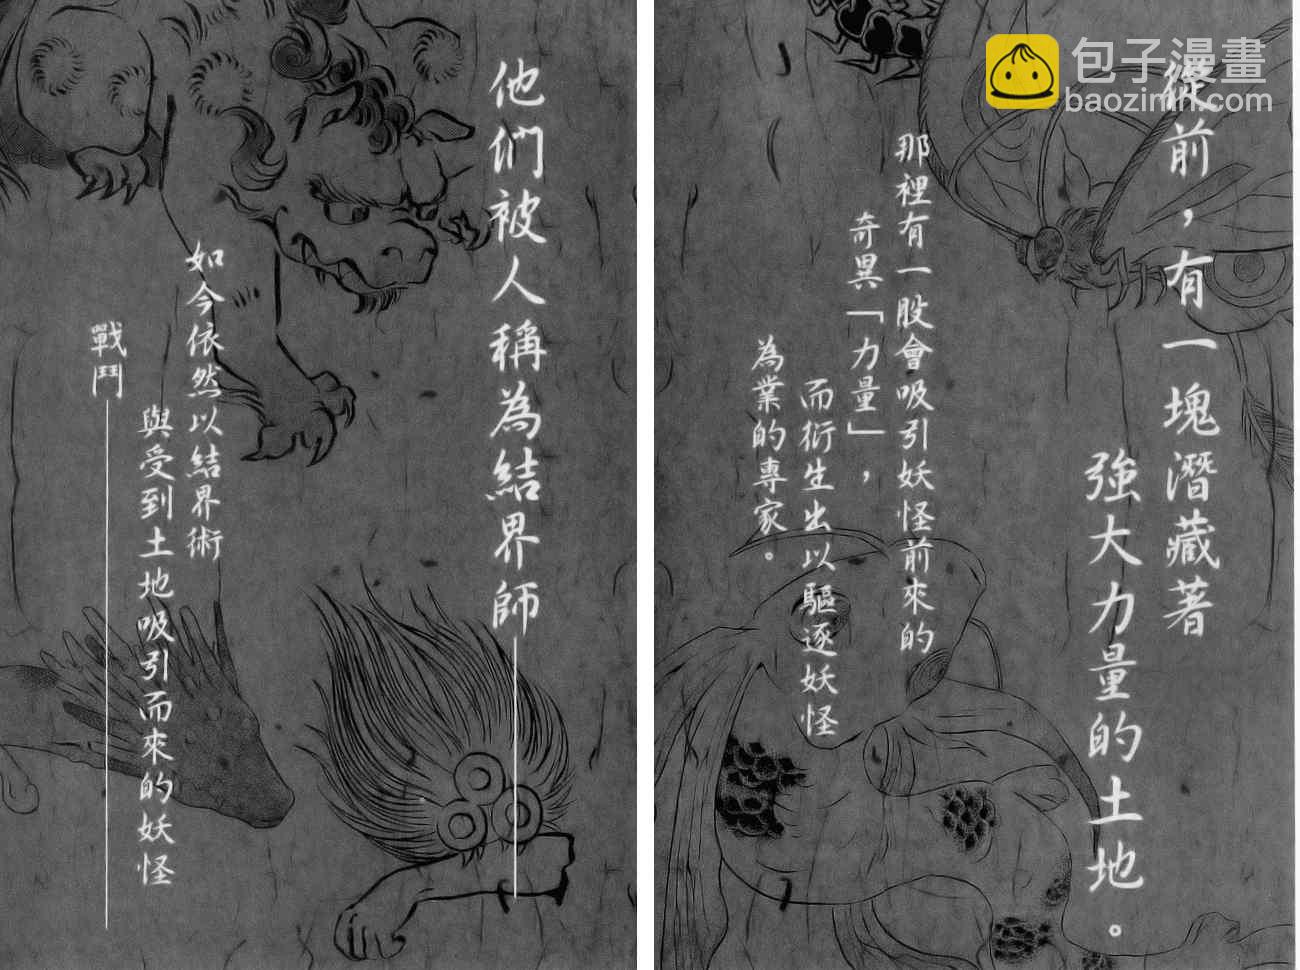 包子漫畫
baozimh.com
從前，有一塊潛藏著
強大力量的土地。
那裡有一股會吸引妖怪前來的
奇異「力量」，
而衍生出以驅逐妖怪
為業的專家。
他們被人稱為結界師——
如今依然以結界術
與受到土地吸引而來的妖怪
戰鬥——